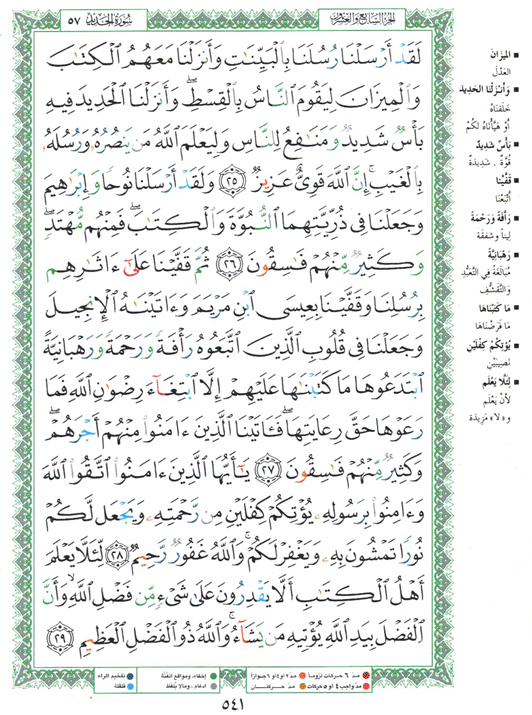 سُورَةُ الحَدِيدِ ٥٧
الجزء السابع والعشرون
لَقَدْ أَرْسَلْنَا رُسُلَنَا بِالْبَيِّنَاتِ وَأَنزَلْنَا مَعَهُمُ الْكِتَابَ
وَالْمِيزَانَ لِيَقُومَ النَّاسُ بِالْقِسْطِ ۖ وَأَنزَلْنَا الْحَدِيدَ فِيهِ
بَأْسٌ شَدِيدٌ وَمَنَافِعُ لِلنَّاسِ وَلِيَعْلَمَ اللَّهُ مَن يَنصُرُهُ وَرُسُلَهُ
بِالْغَيْبِ ۚ إِنَّ اللَّهَ قَوِيٌّ عَزِيزٌ ٢٥ وَلَقَدْ أَرْسَلْنَا نُوحًا وَإِبْرَاهِيمَ
وَجَعَلْنَا فِي ذُرِّيَّتِهِمَا النُّبُوَّةَ وَالْكِتَابَ ۖ فَمِنْهُم مُّهْتَدٍ ۖ
وَكَثِيرٌ مِّنْهُمْ فَاسِقُونَ ٢٦ ثُمَّ قَفَّيْنَا عَلَىٰ ءَاثَارِهِم
بِرُسُلِنَا وَقَفَّيْنَا بِعِيسَى ابْنِ مَرْيَمَ وَءَاتَيْنَاهُ الْإِنجِيلَ
وَجَعَلْنَا فِي قُلُوبِ الَّذِينَ اتَّبَعُوهُ رَأْفَةً وَرَحْمَةً وَرَهْبَانِيَّةً
ابْتَدَعُوهَا مَا كَتَبْنَاهَا عَلَيْهِمْ إِلَّا ابْتِغَاءَ رِضْوَانِ اللَّهِ فَمَا
رَعَوْهَا حَقَّ رِعَايَتِهَا ۖ فَـَٔاتَيْنَا الَّذِينَ ءَامَنُوا مِنْهُمْ أَجْرَهُمْ ۖ
وَكَثِيرٌ مِّنْهُمْ فَاسِقُونَ ٢٧ يَا أَيُّهَا الَّذِينَ ءَامَنُوا اتَّقُوا اللَّهَ
وَءَامِنُوا بِرَسُولِهِ يُؤْتِكُمْ كِفْلَيْنِ مِن رَّحْمَتِهِ وَيَجْعَل لَّكُمْ
نُورًا تَمْشُونَ بِهِ وَيَغْفِرْ لَكُمْ ۚ وَاللَّهُ غَفُورٌ رَّحِيمٌ ٢٨ لِّئَلَّا يَعْلَمَ
أَهْلُ الْكِتَابِ أَلَّا يَقْدِرُونَ عَلَىٰ شَيْءٍ مِّن فَضْلِ اللَّهِ ۙ وَأَنَّ
الْفَضْلَ بِيَدِ اللَّهِ يُؤْتِيهِ مَن يَشَاءُ ۚ وَاللَّهُ ذُو الْفَضْلِ الْعَظِيمِ ٢٩
الميزانَ
العَدْلَ
وَأَنْزَلْنَا الحَدِيد
خَلَقْنَاهُ
أَوْ هَيَّأْنَاهُ لَكُمْ
بَأْسٌ شَدِيدٌ
قُوَّةٌ . شَدِيدَةٌ
قَفَّيْنَا
أَتْبَعْنَا
رَأْفَةً وَرَحْمَةً
لِيناً وشفقة
رَهْبَانِيَّةً
مُبَالَغَةً فِي التَّعَبُّدِ
وَالتَّقَشُّفِ
مَا كَتَبْنَاهَا
مَا فَرَضْنَاهَا
يُؤْتِكُمْ كِفْلَيْنِ
نَصِيبَيْنِ
لِئَلَّا يَعْلَمَ
لأَنْ يَعْلَمَ
و «لا» مَزِيدَة
مدّ ٦ حركات لزوماً
مدّ ٢ أو ٤ أو ٦ جوازاً
إخفاء، ومواقع الغنّة
تفخيم الراء
مدّ واجب ٤ أو ٥ حركات
مدّ حركتان
ادغام، ومالا يلفظ
قلقلة
٥٤١